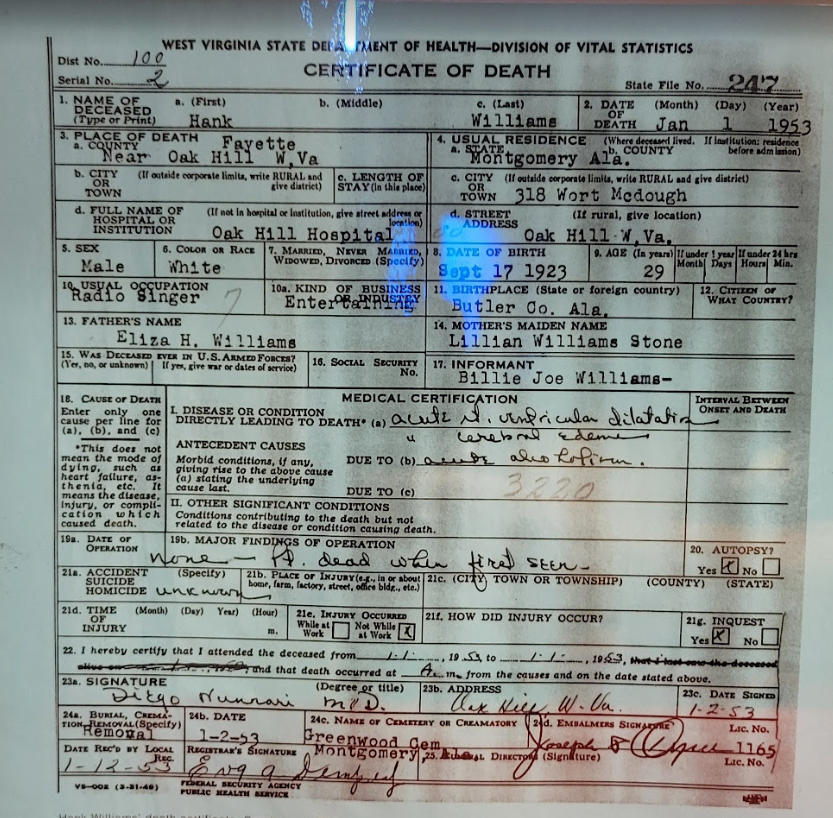 WEST VIRGINIA STATE DEPARTMENT OF HEALTH—DIVISION OF VITAL STATISTICS
Dist No. 100
CERTIFICATE OF DEATH
Serial No. 2
State File No. 247
1. NAME OF DECEASED (Type or Print) a. (First) Hank b. (Middle) c. (Last) Williams
2. DATE OF DEATH (Month) (Day) (Year) Jan 1 1953
3. PLACE OF DEATH
a. COUNTY Fayette
Near Oak Hill W,Va
4. USUAL RESIDENCE (Where deceased lived. If institution: residence before admission)
a. STATE b. COUNTY
Montgomery Ala.
b. CITY OR TOWN (If outside corporate limits, write RURAL and give district)
c. LENGTH OF STAY (In this place)
c. CITY OR TOWN (If outside corporate limits, write RURAL and give district)
318 Wort Mcdough
d. FULL NAME OF HOSPITAL OR INSTITUTION (If not in hospital or institution, give street address or location)
Oak Hill Hospital
d. STREET ADDRESS (If rural, give location)
Oak Hill W,Va.
5. SEX Male
6. COLOR OR RACE White
7. MARRIED, NEVER MARRIED, WIDOWED, DIVORCED (Specify)
8. DATE OF BIRTH Sept 17 1923
9. AGE (In years) 29 If under 1 year Month Days If under 24 hrs Hours Min.
10. USUAL OCCUPATION Radio Singer 7
10a. KIND OF BUSINESS OR INDUSTRY Entertaining
11. BIRTHPLACE (State or foreign country) Butler Co. Ala.
12. CITIZEN OF WHAT COUNTRY?
13. FATHER'S NAME
Eliza H. Williams
14. MOTHER'S MAIDEN NAME
Lillian Williams Stone
15. WAS DECEASED EVER IN U.S. ARMED FORCES?
(Yes, no, or unknown) If yes, give war or dates of service)
16. SOCIAL SECURITY No.
17. INFORMANT
Billie Joe Williams-
MEDICAL CERTIFICATION
18. CAUSE OF DEATH
Enter only one cause per line for (a), (b), and (c)
*This does not mean the mode of dying, such as heart failure, asthenia, etc. It means the disease, injury, or complication which caused death.
I. DISEASE OR CONDITION DIRECTLY LEADING TO DEATH* (a) acute rt. ventricular dilatation
cerebral edema
INTERVAL BETWEEN ONSET AND DEATH
ANTECEDENT CAUSES
Morbid conditions, if any, giving rise to the above cause (a) stating the underlying cause last.
DUE TO (b) acute alcoholism.
DUE TO (c) 3220
II. OTHER SIGNIFICANT CONDITIONS
Conditions contributing to the death but not related to the disease or condition causing death.
19a. DATE OF OPERATION
19b. MAJOR FINDINGS OF OPERATION
None — Pt. dead when first seen-
20. AUTOPSY?
Yes X No
21a. ACCIDENT SUICIDE HOMICIDE (Specify) unknown
21b. PLACE OF INJURY (e.g., in or about home, farm, factory, street, office bldg., etc.)
21c. (CITY, TOWN OR TOWNSHIP) (COUNTY) (STATE)
21d. TIME OF INJURY (Month) (Day) (Year) (Hour) m.
21e. INJURY OCCURRED
While at Work Not While at Work X
21f. HOW DID INJURY OCCUR?
21g. INQUEST
Yes X No
22. I hereby certify that I attended the deceased from 1-1-, 1953 to 1-1-, 1953, that I last saw the deceased
alive on and that death occurred at A.m. from the causes and on the date stated above.
23a. SIGNATURE (Degree or title) Diego Nunnari M.D.
23b. ADDRESS Oak Hill W-Va.
23c. DATE SIGNED 1-2-53
24a. BURIAL, CREMATION REMOVAL (Specify) Removal
24b. DATE 1-2-53
24c. NAME OF CEMETERY OR CREAMATORY
Greenwood Cem
Montgomery,
24d. EMBALMERS SIGNATURE Joseph LIC. No. 1165
DATE REC'D BY LOCAL REG. 1-12-53
REGISTRAR'S SIGNATURE
25. FUNERAL DIRECTOR (Signature) LIC. No.
VS-002 (3-31-49)
FEDERAL SECURITY AGENCY
PUBLIC HEALTH SERVICE